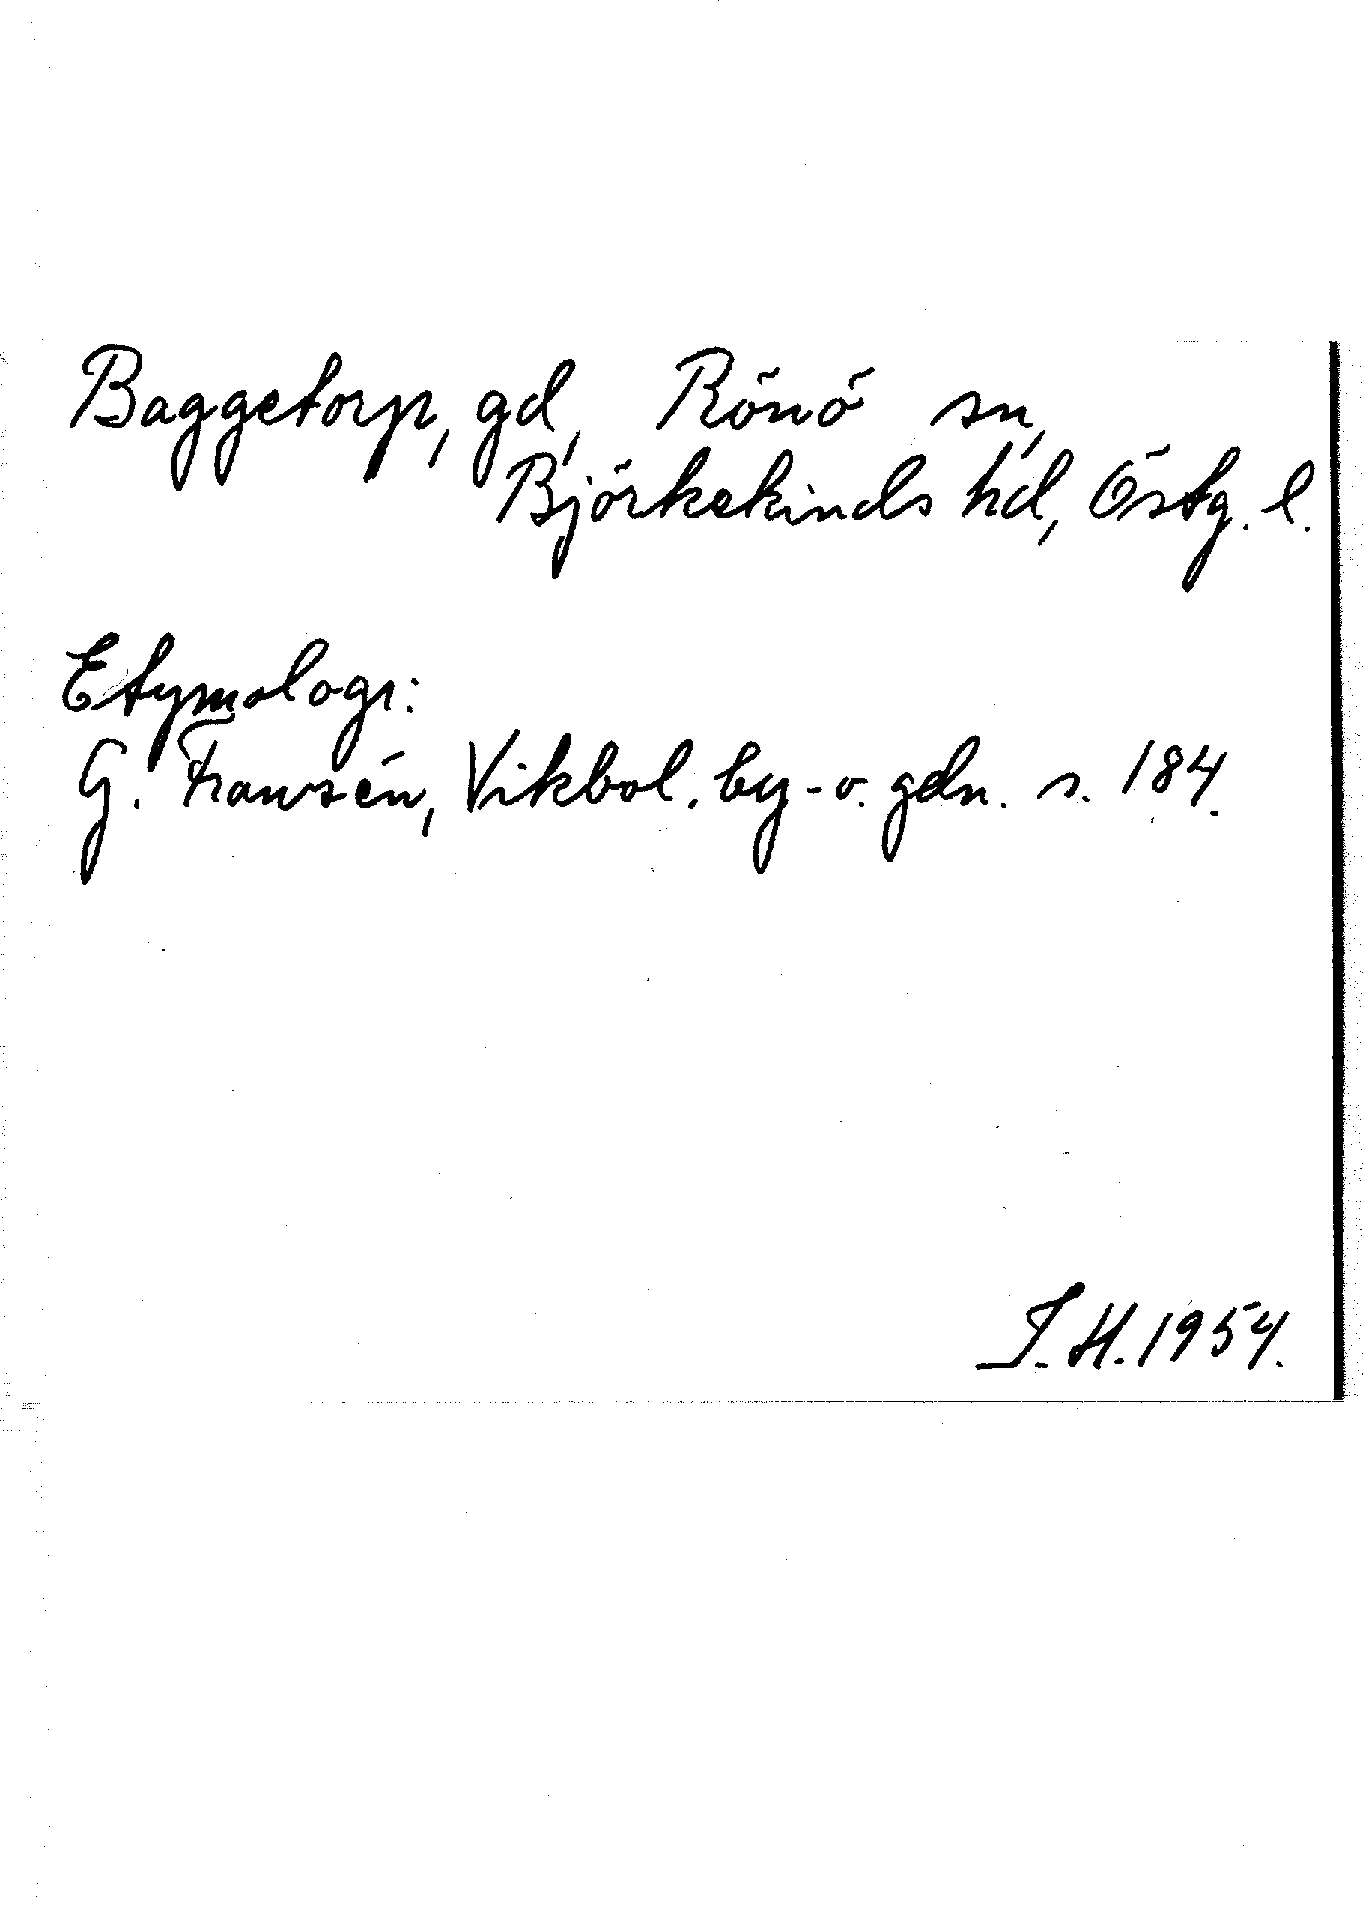 Baggetorp, gd, Rönö sn,
Björkekinds hd, Östg. l.
Etymologi:
G. Franzén, Vikbol. by- o. gdn. s. 184.
I. H. 1954.